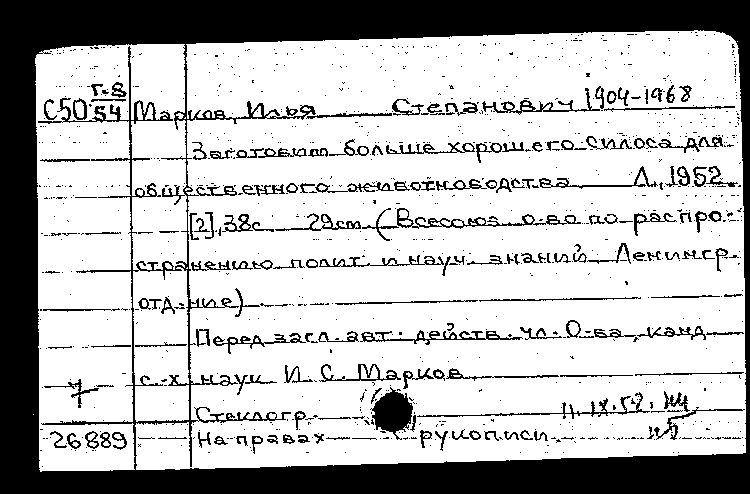 Г-8
С50 54 Марков, Илья Степанович 1904-1968
Заготовим больше хорошего силоса для
общественного животноводства Л., 1952.
[2], 38с 29см (Всесоюз. о-во по распро-
странению полит. и науч. знаний. Ленингр.
отд-ние)
Перед загл. авт.: действ. чл. О-ва, канд
с.-х. наук И. С. Марков
Стеклогр.
11.IX.52.
26889 На правах рукописи